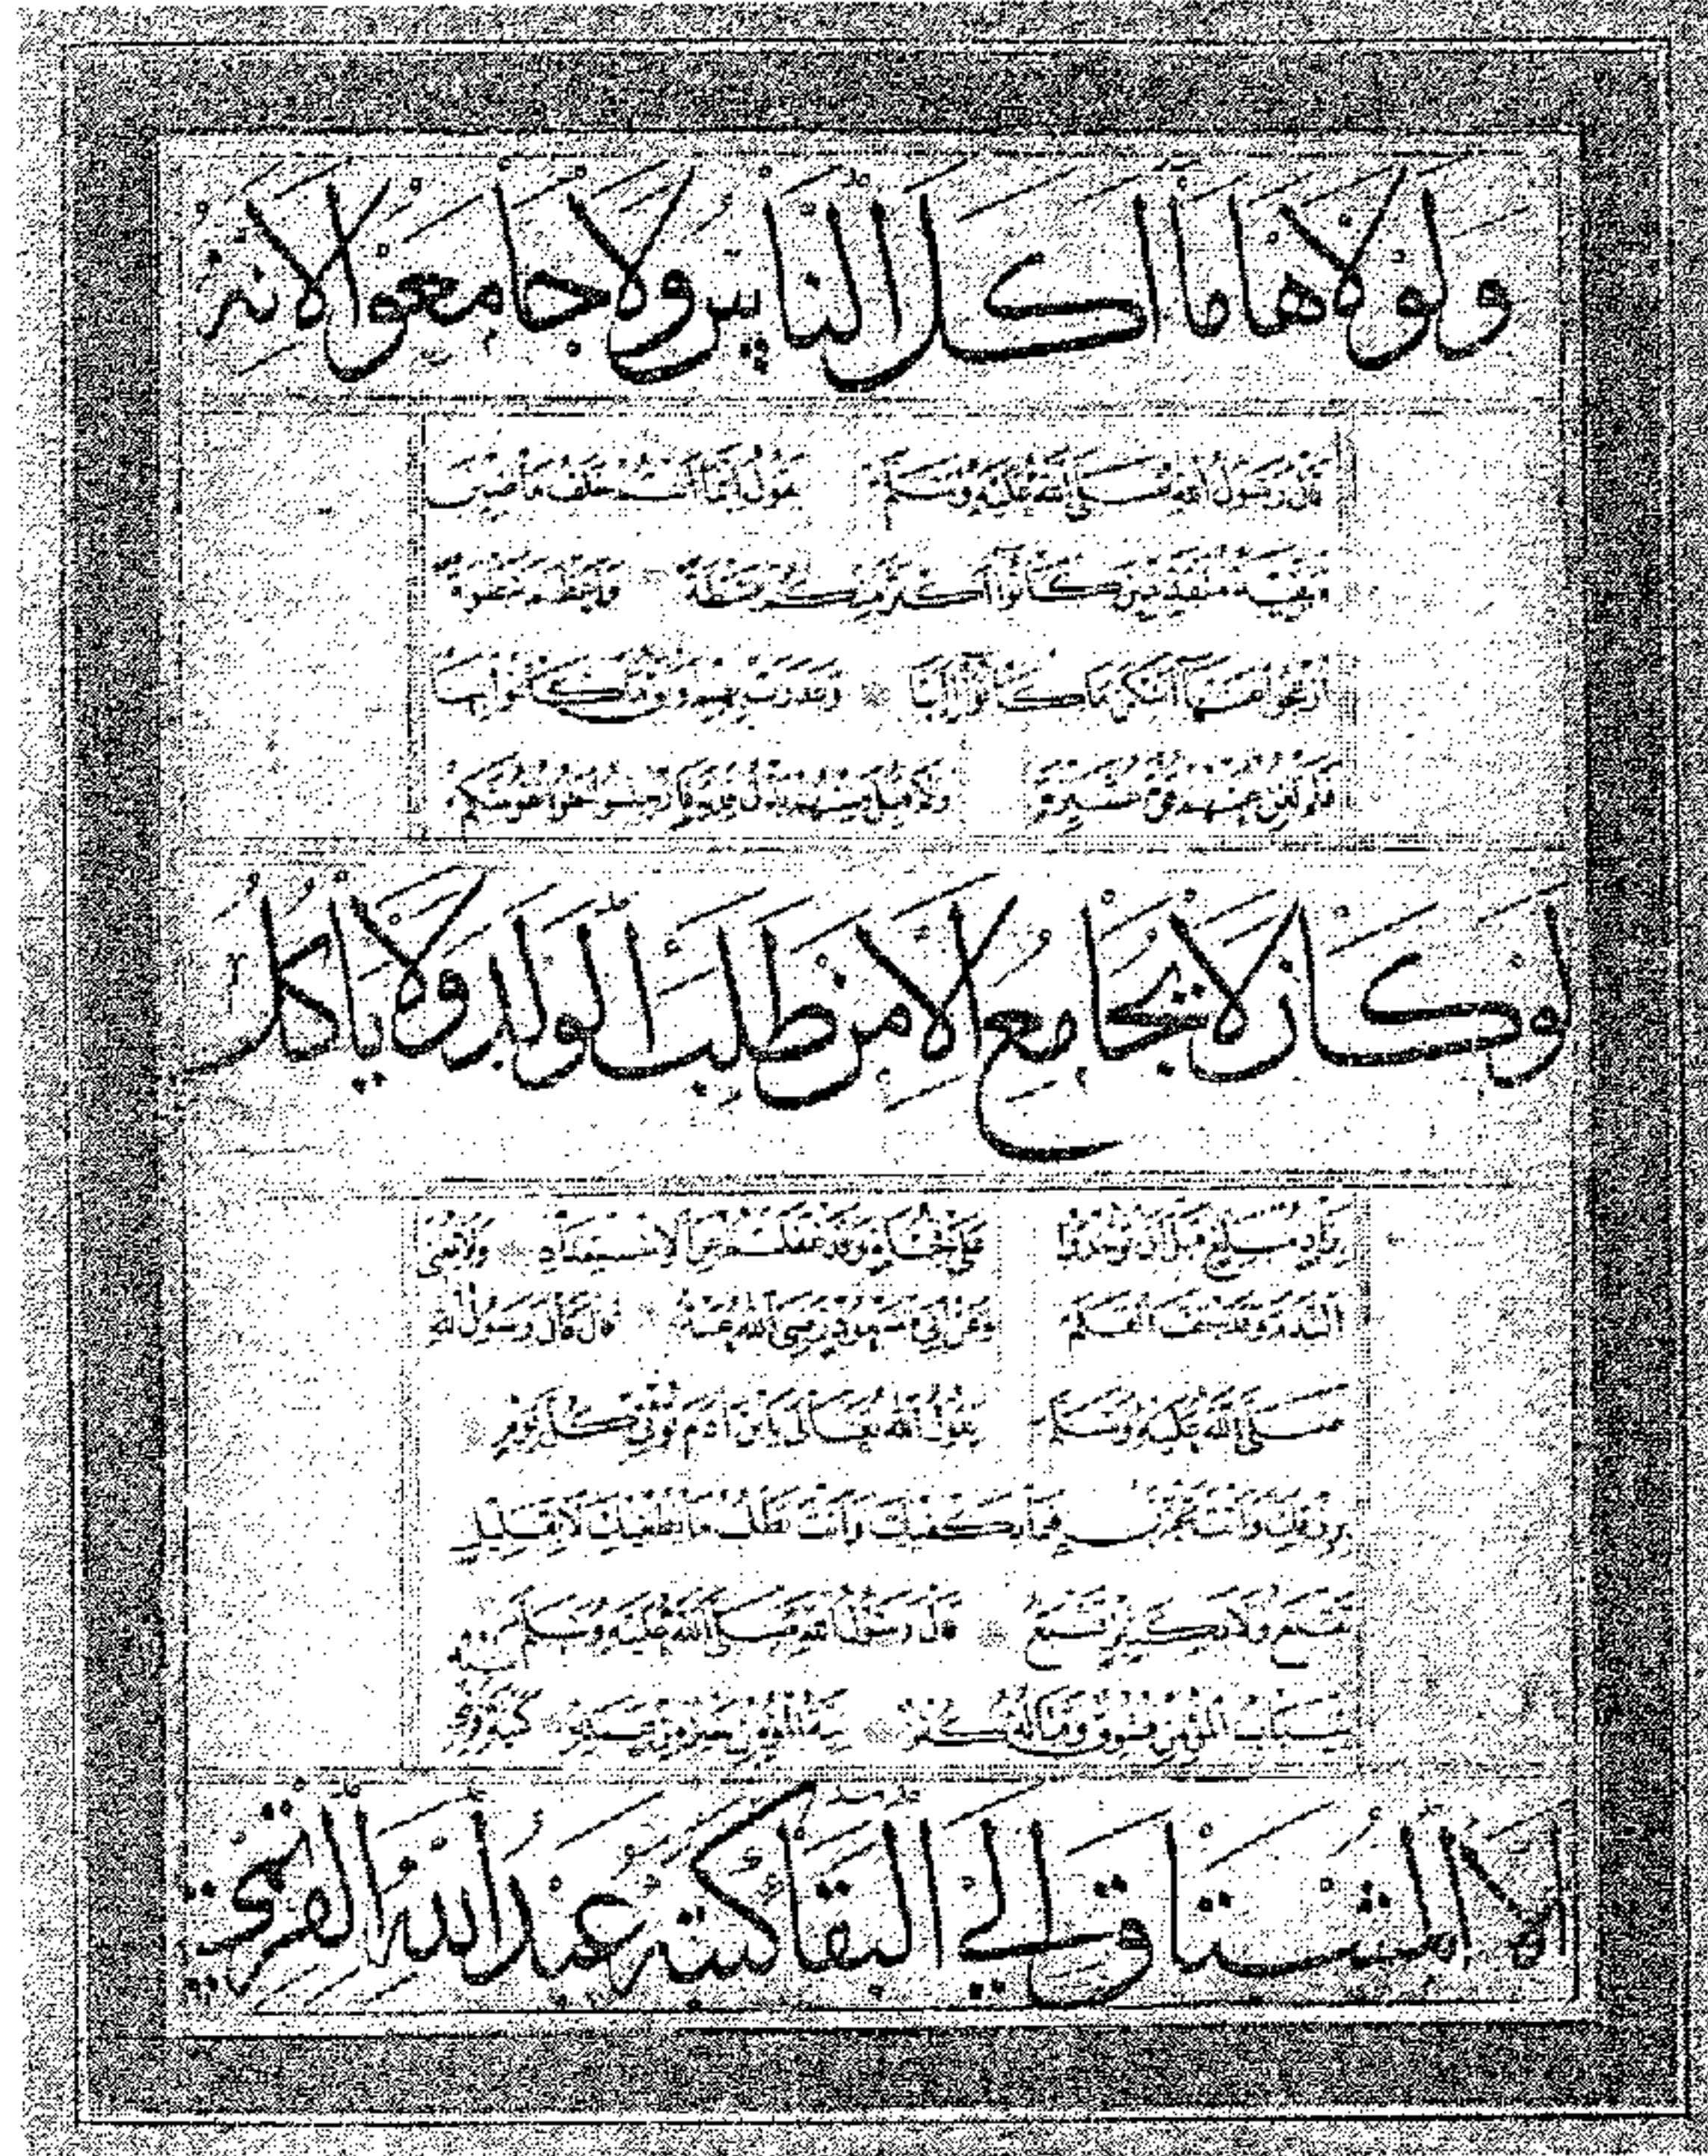 ولولاها ما أكل الناس ولا جامعوا لانه
قال رسول الله صلى الله عليه وسلم يقول انما انتم خلف ماضين
وبقية متقدمين كانوا اكثر منكم بسطة واعظم سطوة
ازعجوا عنها اسكن ما كانوا اليها وغدرت بهم اوثق ما كانوا بها
فلم تغن عنهم قوة عشيرة ولا قبل منهم بذل فدية فارحلوا نفوسكم
لو كان لا يجامع الا من طلب الولد ولا ياكل
بزاد مبلغ قبل ان تؤخذوا على فجأة وقد غفلتم عن الاستعداد ولا يغني
الندم وقد جف القلم وعن ابي رضي الله عنه قال قال رسول الله
صلى الله عليه وسلم يقول الله تعالى يا ابن ادم تؤتى كل يوم
برزقك وانت تحزن فيما يكفيك وانت تطلب ما يطغيك لا بقليل
تقنع ولا بكثير تشبع قال رسول الله صلى الله عليه وسلم
سباب المؤمن فسوق وقتاله كفر
الا المشتاق الي البقا كتبه عبد الله القريمي